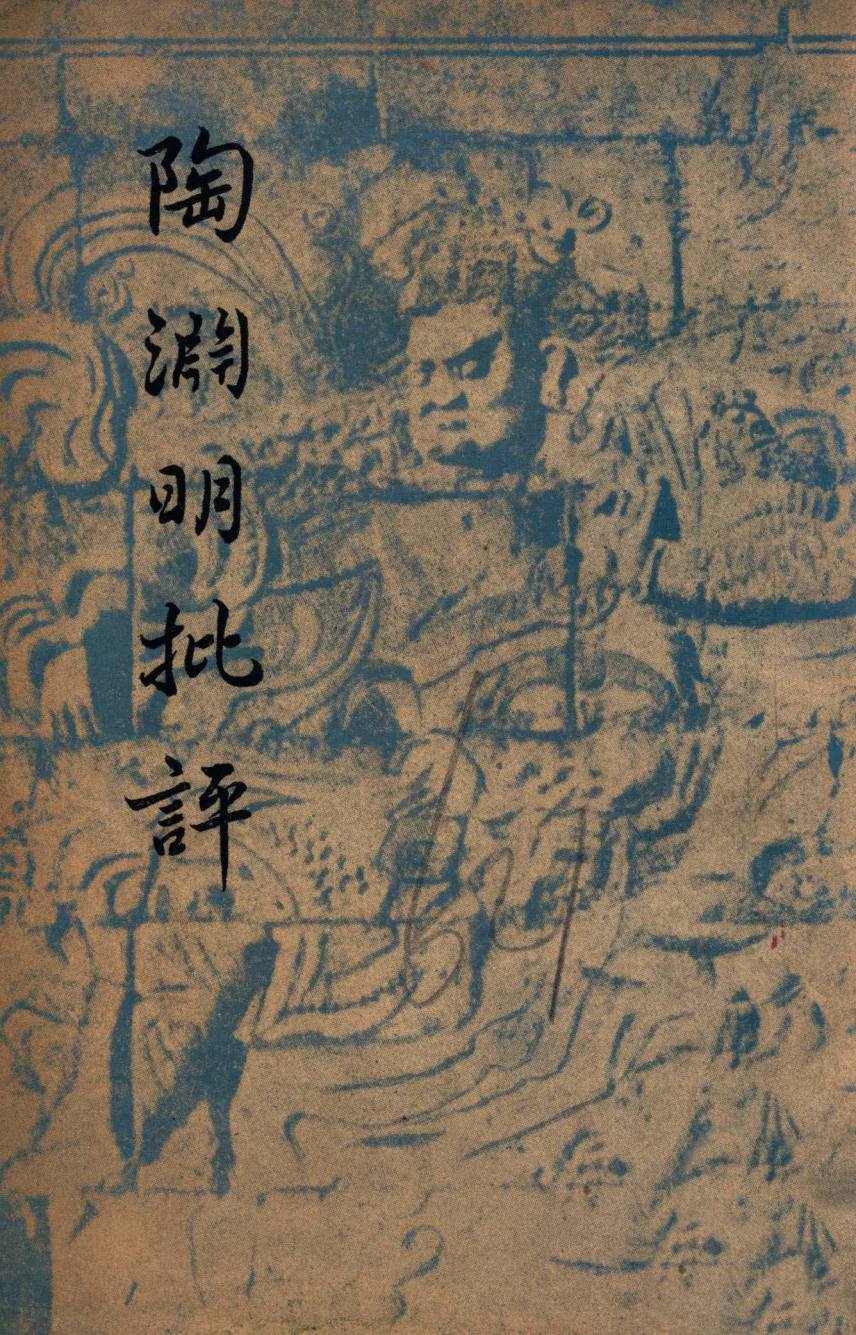 陶淵明批評
64